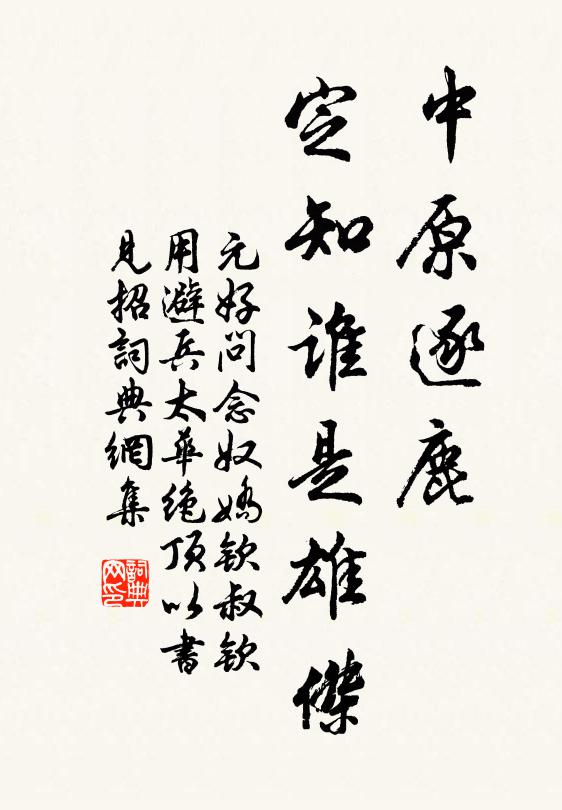 中原逐鹿
定知誰是雄傑
元好問念奴嬌欽叔欽
用避兵太華絶頂以書
見招詞典網集
詞典
网印